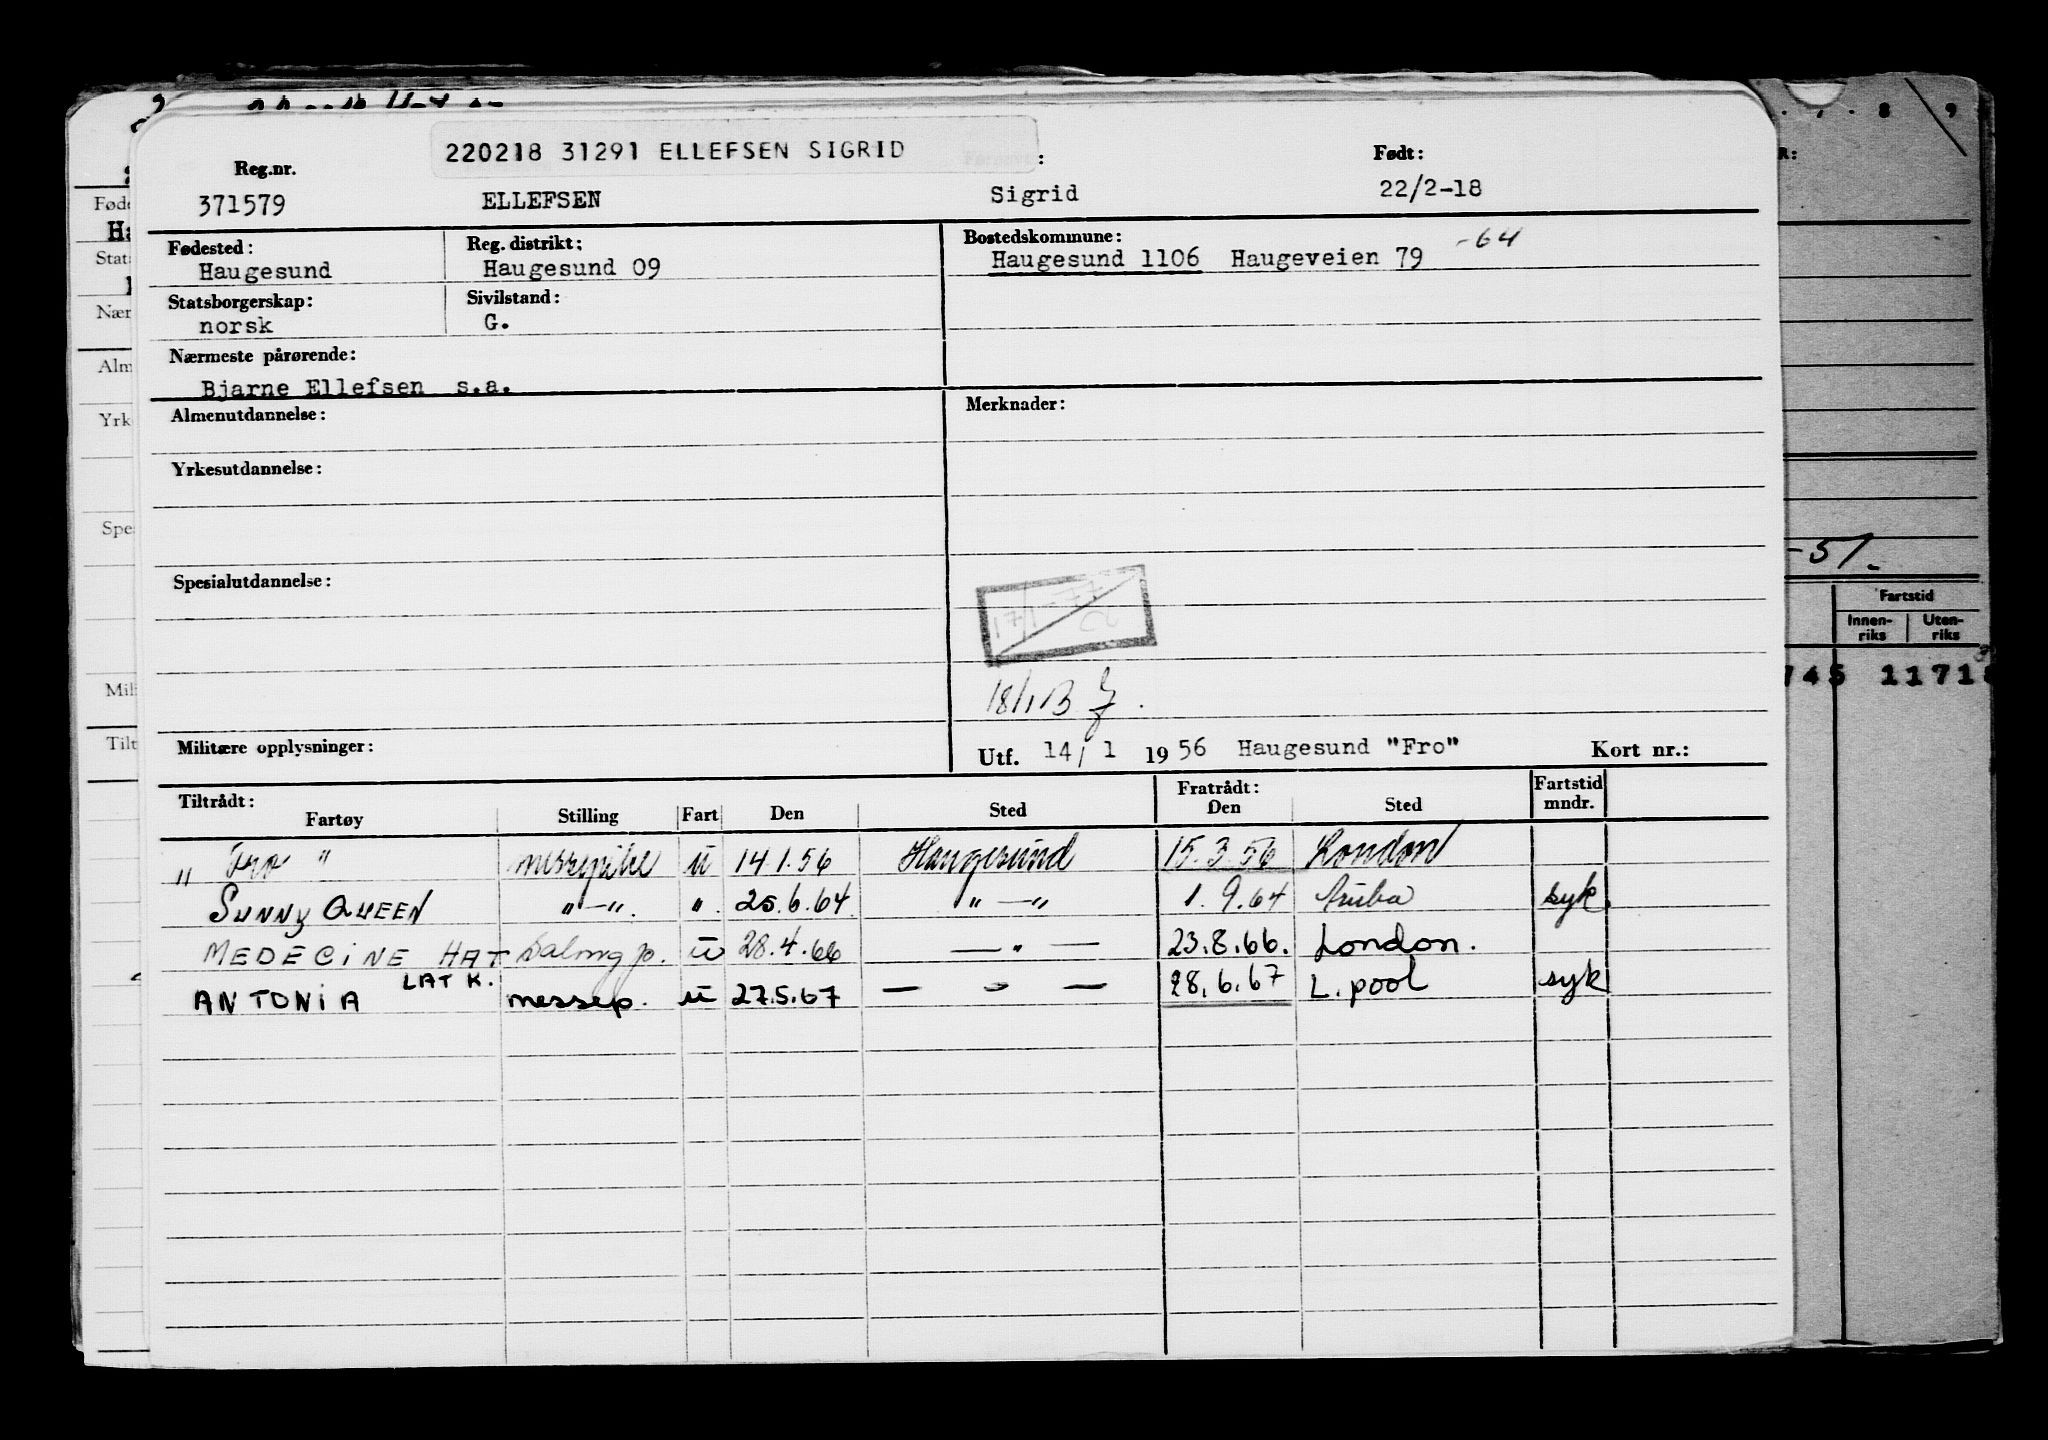 220218 31291 ELLEFSEN SIGRID
Reg.nr. Født:
371579 ELLEFSEN Sigrid 22/2-18
Fødested: Reg. distrikt: Bostedskommune: -64
Haugesund Haugesund 09 Haugesund 1106 Haugeveien 79
Statsborgerskap: Sivilstand:
norsk G.
Nærmeste pårørende:
Bjarne Ellefsen s.a.
Almenutdannelse: Merknader:
Yrkesutdannelse:
Spesialutdannelse:
17/1-77
Militære opplysninger: Utf. 14/1 1956 Haugesund "Fro" Kort nr.:
Tiltrådt: Fratrådt: Fartstid
Fartøy Stilling Fart Den Sted Den Sted mndr.
„ Fro " messepike u 14 1.56 Haugesund 15.3.56 London
SUNNY QUEEN " — ". ". 25.6.64 " — " 1.9.64 Aruba syk.
MEDECINE HAT Salong p. u 28.4.66 — " — 23.8.66. London.
LATK.
ANTONIA messep. u 27.5.67 — " — 28.6.67 L.pool syk
Føde
Ha
Stat
Nær
Alm
Yrk
Spe
Mil
Tilt
8 9
R:
-51.
Fartstid
Innen-riks Uten-riks
745 11718